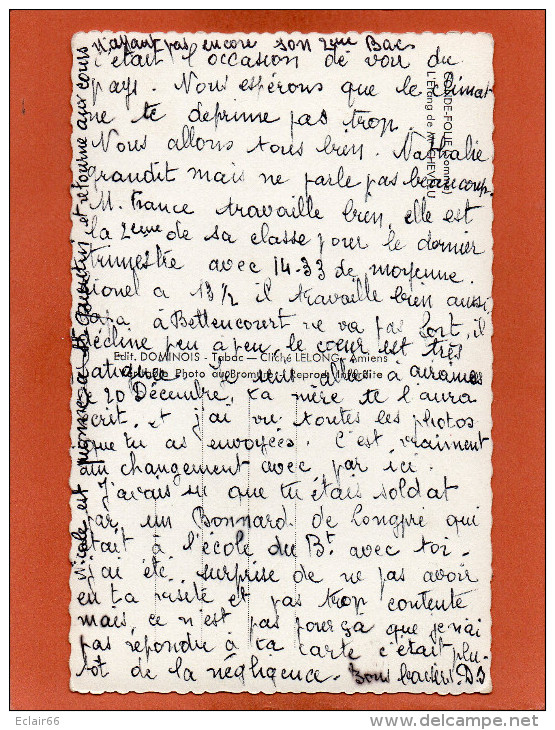 n'ayant pas encore son 2ème Bac
c'était l'occasion de voir du
pays. Nous espérons que le climat
ne te déprime pas trop.
Nous allons tous bien. Nathalie
grandit mais ne parle pas beaucoup.
M. France travaille bien, elle est
la 2ème de sa classe pour le dernier
trimestre avec 14-33 de moyenne.
Lionel a 13 1/2 il travaille bien aussi
Papa à Bettencourt ne va pas fort, il
décline peu à peu, le cœur est très
Edit. DOMINOIS - Tabac - Cliché LELONG - Amiens
fatigué. Je suis allée à airaines
Photo au Bromure - Reprod. Interdite
le 20 Décembre, ta mère te l'aura
écrit, et j'ai vu toutes les photos
que tu as envoyées. C'est vraiment
un changement avec par ici.
J'avais su que tu étais soldat
par un Bonnard de Longpré qui
était à l'école du Bt avec toi.
j'ai été surprise de ne pas avoir
eu ta visite et pas trop contente
mais, ce n'est pas pour ça que je n'ai
pas répondu à ta carte c'était plu-
tôt de la négligence. Bons baisers D.D
Nicole est pionne à St Quentin et retourne aux cours
GRANDE-FOLIE (Somme)
L'Étang de M. CHEVAL
Eclair66
delcampe.net